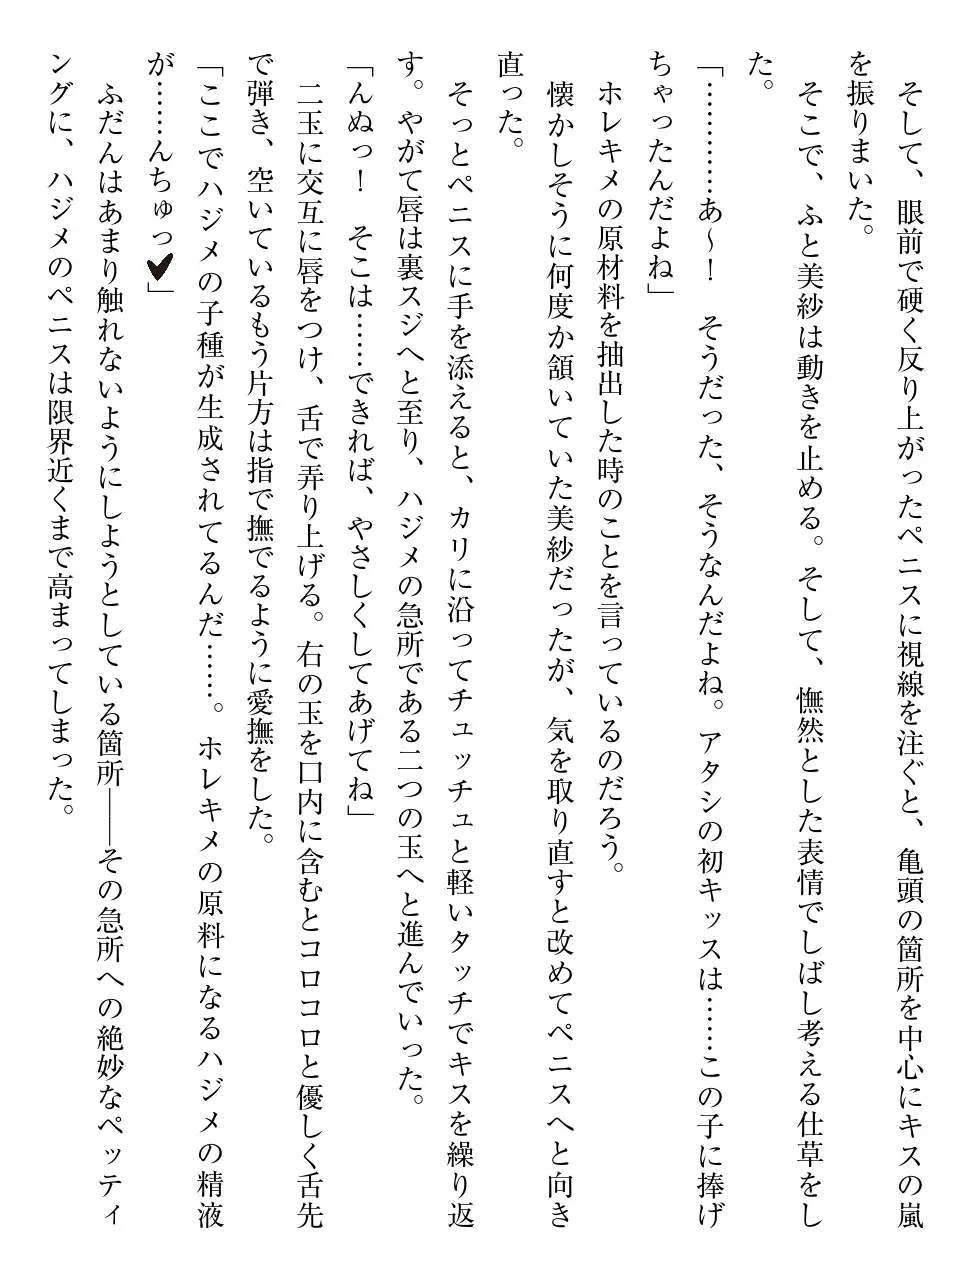 そして、眼前で硬く反り上がったペニスに視線を注ぐと、亀頭の箇所を中心にキスの嵐
を振りまいた。
そこで、ふと美紗は動きを止める。そして、憮然とした表情でしばし考える仕草をし
た。
「…………あ～！　そうだった、そうなんだよね。アタシの初キッスは……この子に捧げ
ちゃったんだよね」
ホレキメの原材料を抽出した時のことを言っているのだろう。
懐かしそうに何度か頷いていた美紗だったが、気を取り直すと改めてペニスへと向き
直った。
そっとペニスに手を添えると、カリに沿ってチュッチュと軽いタッチでキスを繰り返
す。やがて唇は裏スジへと至り、ハジメの急所である二つの玉へと進んでいった。
「んぬっ！　そこは……できれば、やさしくしてあげてね」
二玉に交互に唇をつけ、舌で弄り上げる。右の玉を口内に含むとコロコロと優しく舌先
で弾き、空いているもう片方は指で撫でるように愛撫をした。
「ここでハジメの子種が生成されてるんだ……。ホレキメの原料になるハジメの精液
が……んちゅっ♥」
ふだんはあまり触れないようにしようとしている箇所――その急所への絶妙なペッティ
ングに、ハジメのペニスは限界近くまで高まってしまった。